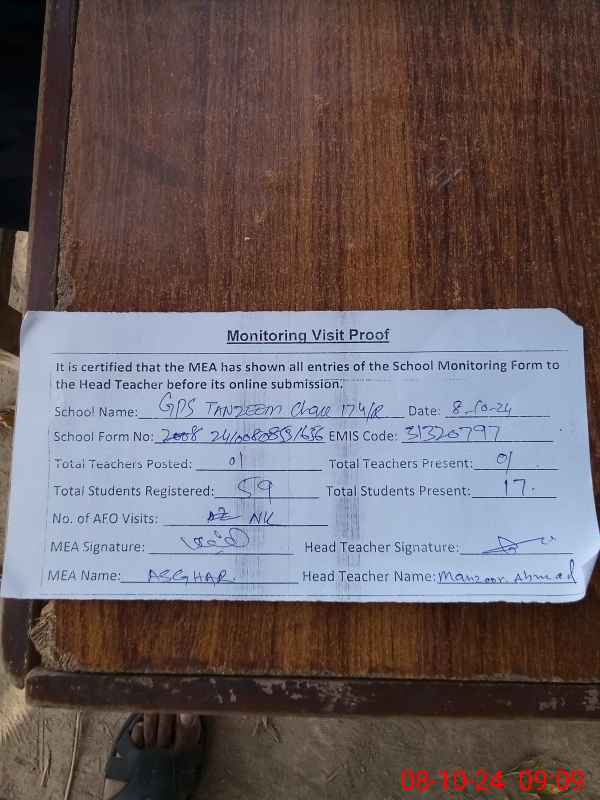 Monitoring Visit Proof
It is certified that the MEA has shown all entries of the School Monitoring Form to
the Head Teacher before its online submission.
School Name: GPS TANZEEM Chak 174/R Date: 8-10-24
School Form No: EMIS Code: 31320797
Total Teachers Posted: 01 Total Teachers Present: 01
Total Students Registered: 59 Total Students Present: 17.
No. of AFO Visits: NK
MEA Signature: Head Teacher Signature:
MEA Name: ASGHAR. Head Teacher Name: Manzoor Ahmad
08-10-24 09:09